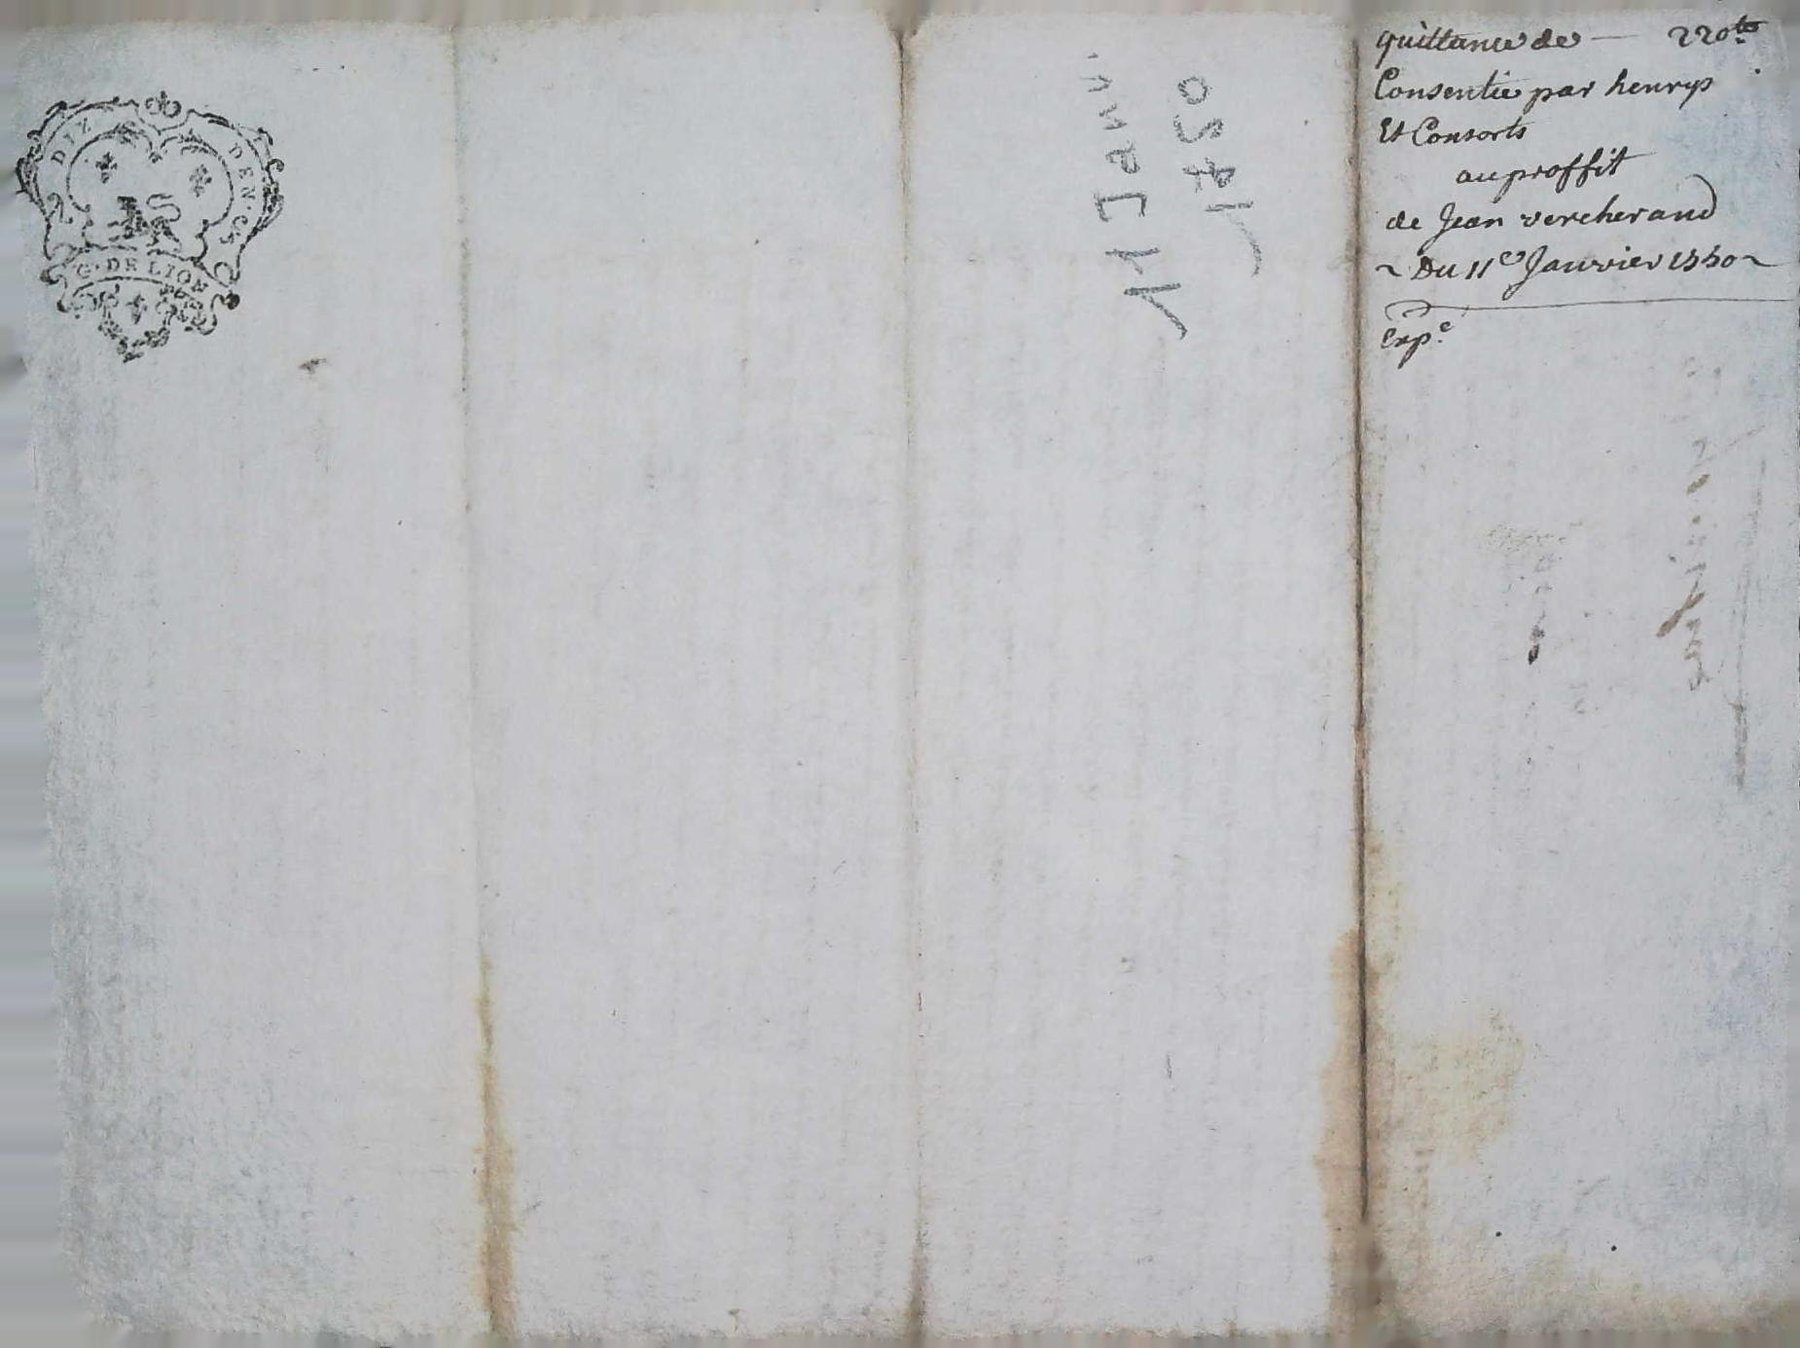 DIX DEN. Gs
G. DE LION
11 Janv.
1750
quittance de — 220ᵗᵗ
Consentie par henrys
Et Consorts
au proffit
de Jean vercherand
~ Du 11ᵉ Janvier 1750 ~
Expᵉ